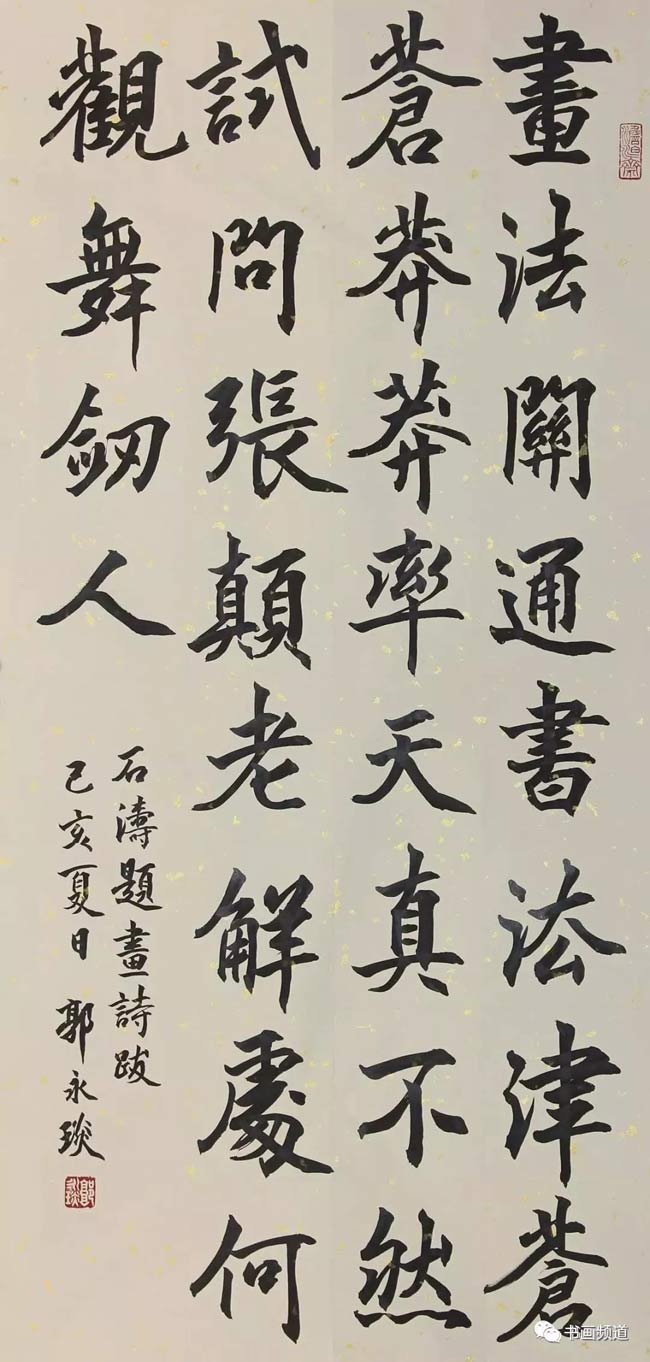 畫法關通書法津蒼
蒼莽莽率天真不然
試問張顛老解處何
觀舞劒人
石濤題畫詩跋
己亥夏日 郭永琰
书画频道